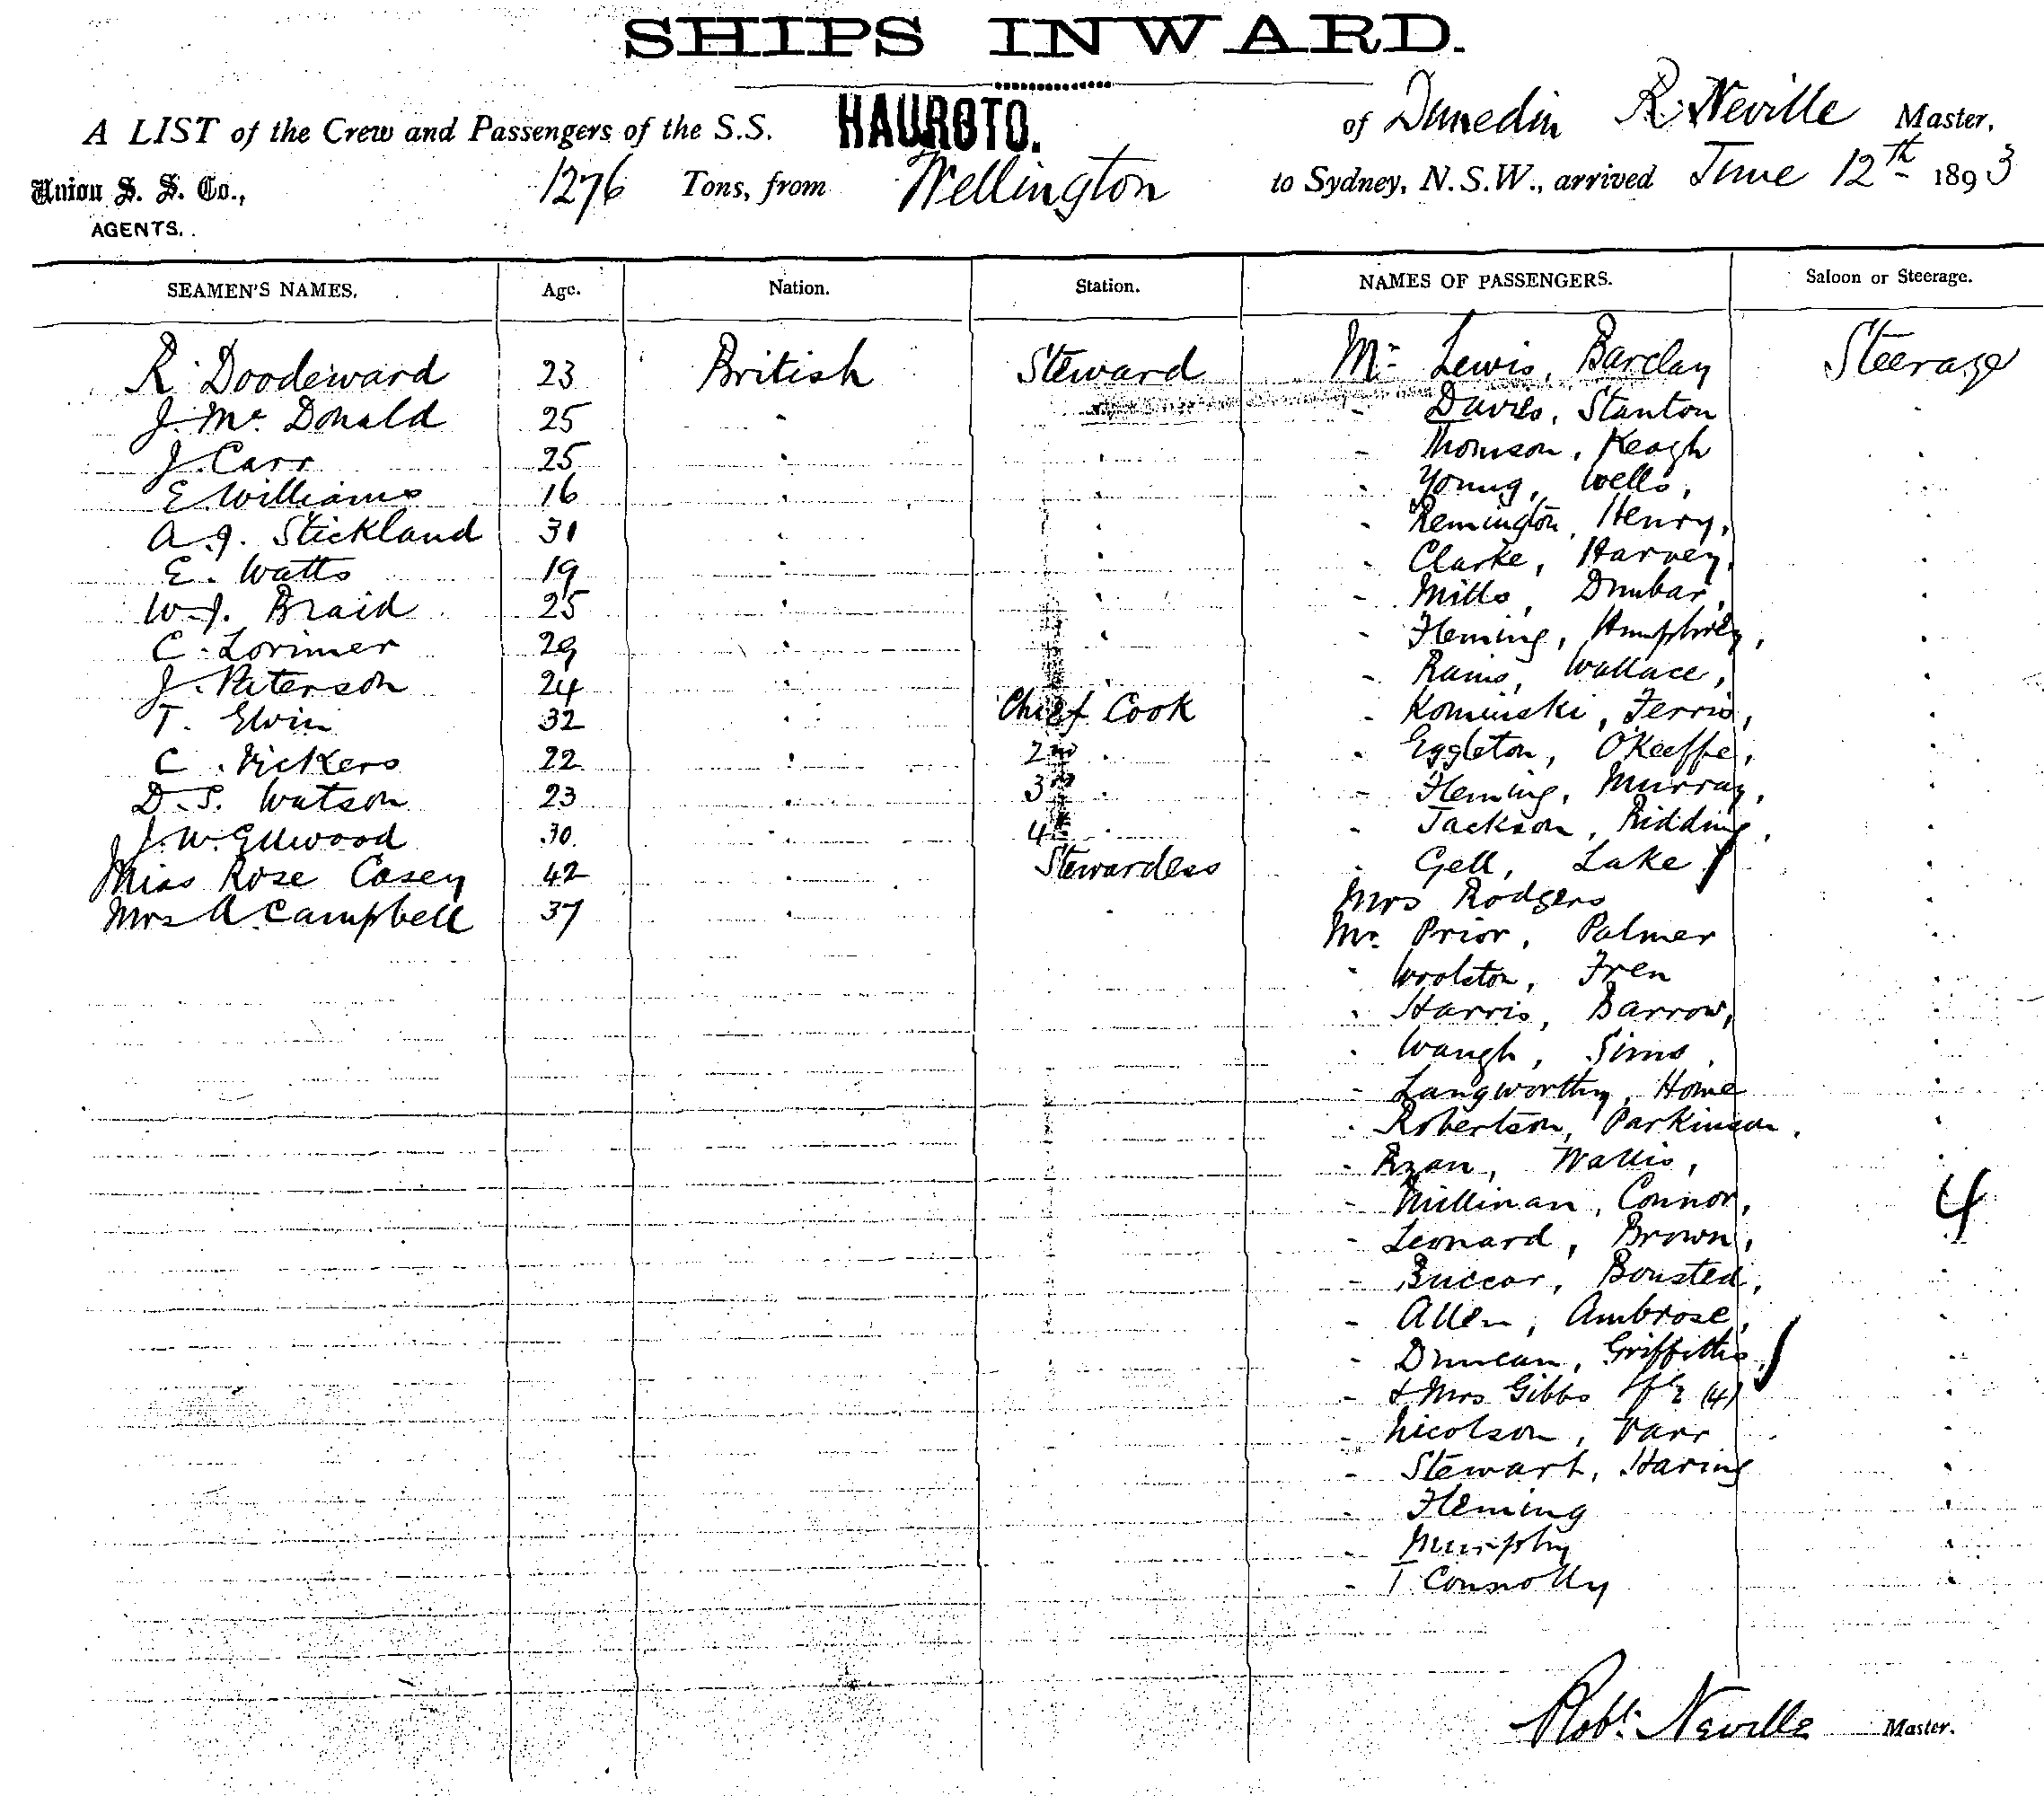 SHIPS INWARD.
A LIST of the Crew and Passengers of the S.S. HAUROTO. of Dunedin R. Neville Master,
Union S. S. Co., 1276 Tons, from Wellington to Sydney, N.S.W., arrived June 12th 1893
AGENTS.
SEAMEN'S NAMES. Age. Nation. Station. NAMES OF PASSENGERS. Saloon or Steerage.
R. Doodeward 23 British Steward Mr Lewis, Barclay Steerage
J. Mc Donald 25 " " Davies, Stanton "
J. Carr 25 " " " Thomson, Keogh "
E. Williams 16 " " " Young, Wells, "
A.J. Stickland 31 " " " Remington, Henry, "
E. Watts 19 " " " Clarke, Harvey, "
W.J. Braid 25 " " " Mills, Dunbar, "
C. Lorimer 29 " " " Fleming, Humphrey, "
J. Paterson 24 " " " Rains, Wallace, "
T. Elvin 32 " Chief Cook " Kominski, Ferris, "
C. Vickers 22 " 2nd " " Eggleton, O'Keeffe, "
D.S. Watson 23 " 3rd " " Fleming, Murray, "
J.W. Ellwood 30 " 4th " " Jackson, Ridding, "
Miss Rose Casey 42 " Stewardess " Gell, Lake "
Mrs A. Campbell 37 " " Mrs Rodgers "
Mr. Prior, Palmer "
" Woolston, Fren "
" Harris, Barrow, "
" Waugh, Sims, "
" Langworthy, Home "
" Robertson, Parkinson, "
" Ryan, Wallis, "
" Millinan, Connor, 4
" Leonard, Brown, "
" Buccar, Bousted, "
" Allen, Ambrose, "
" Duncan, Griffiths, "
" & Mrs Gibbs (4) "
" Nicolson, Varr "
" Stewart, Haring "
" Fleming "
" Murphy "
" T Connolly "
Robt. Neville Master.